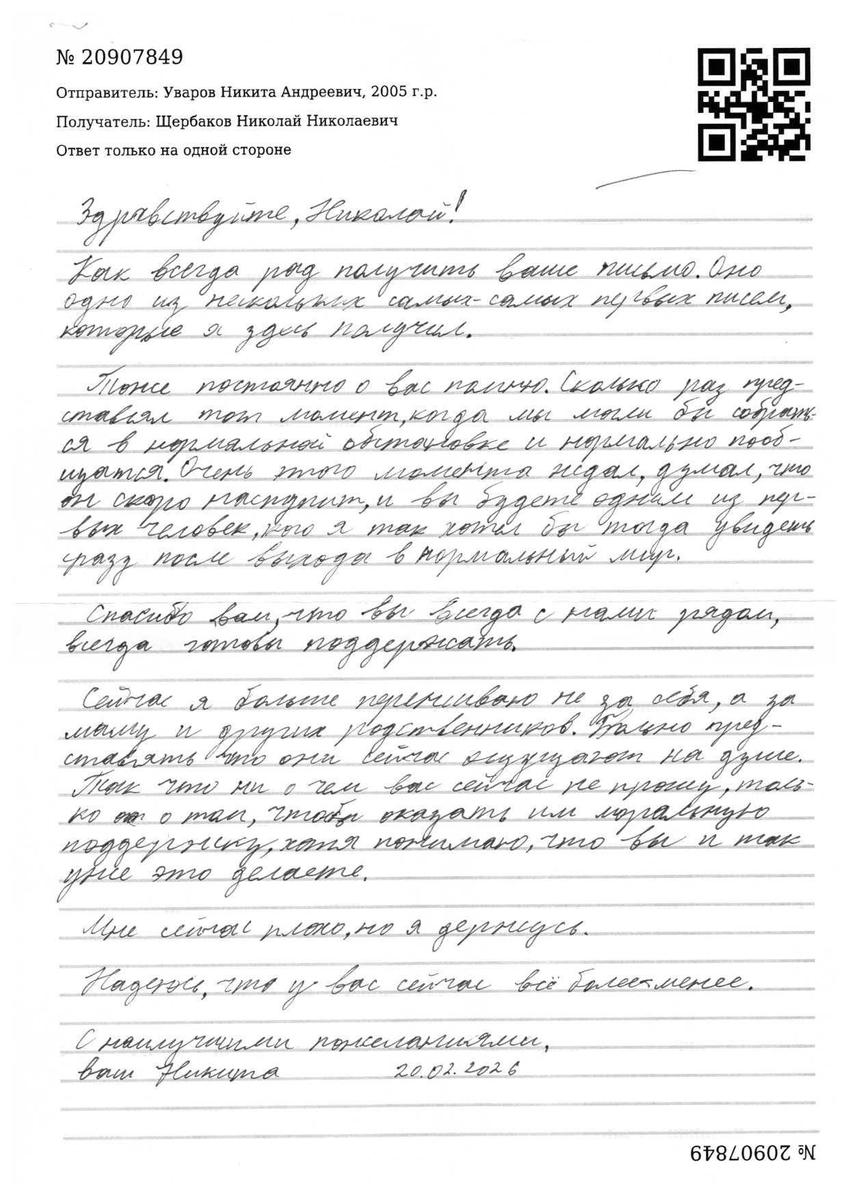 № 20907849
Отправитель: Уваров Никита Андреевич, 2005 г.р.
Получатель: Щербаков Николай Николаевич
Ответ только на одной стороне
Здравствуйте, Николай!
Как всегда рад получить ваше письмо. Оно
одно из нескольких самых-самых первых писем,
которые я здесь получил.
Тоже постоянно о вас помню. Сколько раз пред-
ставлял тот момент, когда мы могли бы собрать-
ся в нормальной обстановке и нормально пооб-
щатся. Очень этого момента ждал, думал, что
он скоро наступит, и вы будете одним из пер-
вых человек, кого я так хотел бы тогда увидеть
сразу после выхода в нормальный мир.
Спасибо вам, что вы всегда с нами рядом,
всегда готовы поддержать.
Сейчас я больше переживаю не за себя, а за
маму и других родственников. Больно пред-
ставлять что они сейчас ощущают на душе.
Так что ни о чем вас сейчас не прошу, толь-
ко о том, чтобы оказать им моральную
поддержку, хотя понимаю, что вы и так
уже это делаете.
Мне сейчас плохо, но я держусь.
Надеюсь, что у вас сейчас всё более-менее.
С наилучшими пожеланиями,
ваш Никита 20.02.2026
№ 20907849